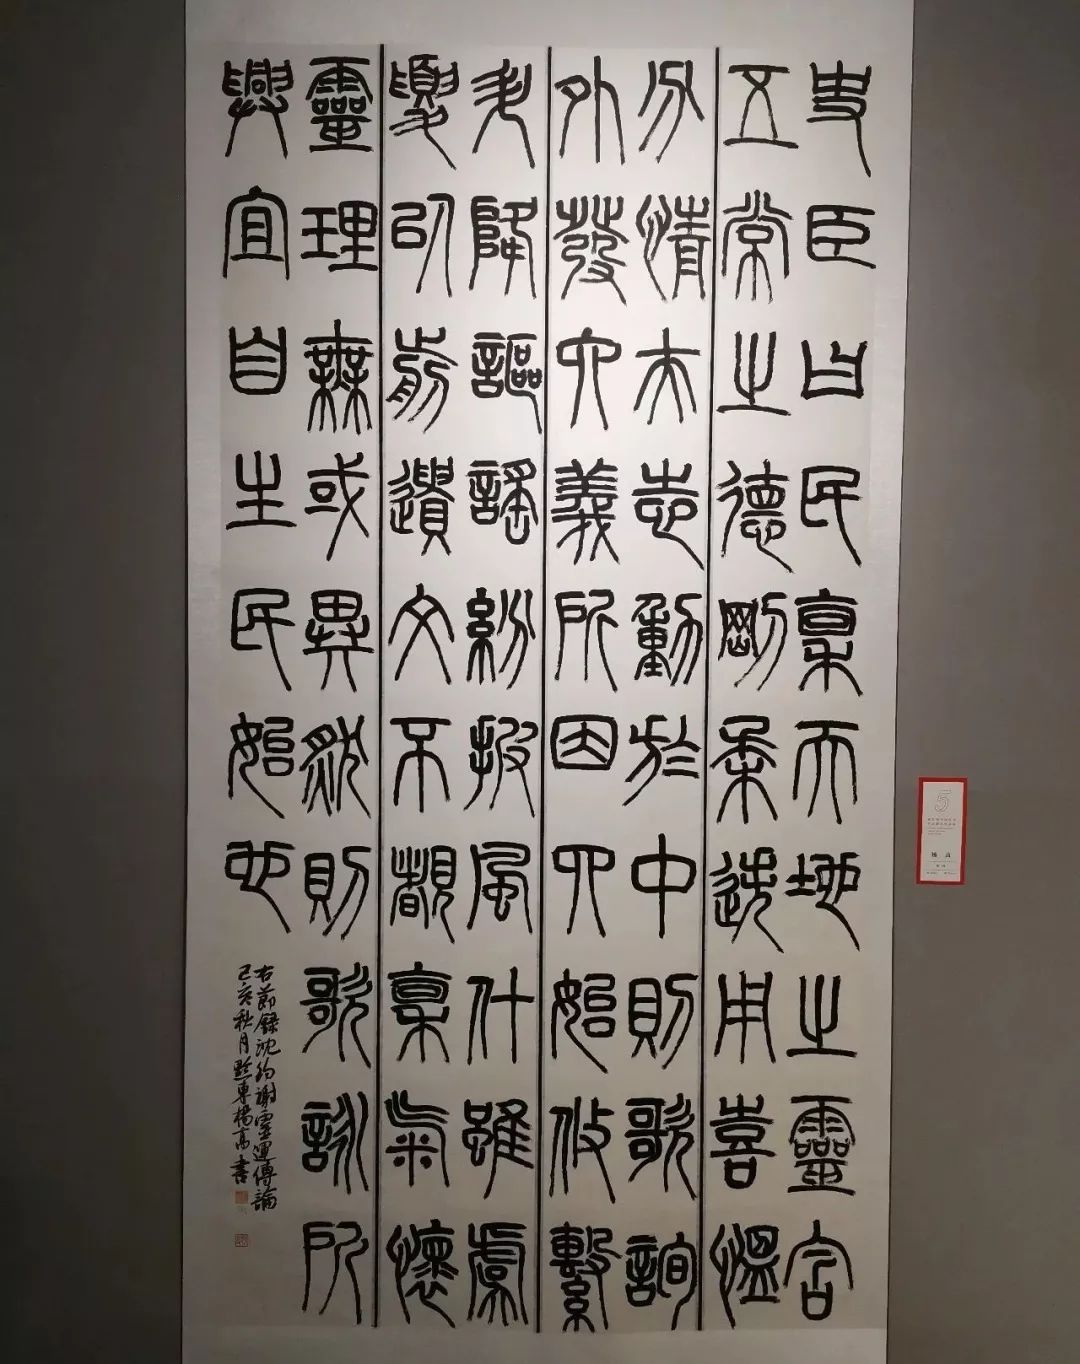 史臣曰民稟天地之靈含
五常之德剛柔迭用喜慍
分情夫志動於中則歌詠
外發六義所因四始攸繫
升降謳謠紛披風什雖虞
夏以前遺文不覩稟氣懷
靈理無或異然則歌詠所
興宜自生民始也
右節錄沈約謝靈運傳論
己亥秋月黔東楊高書
5